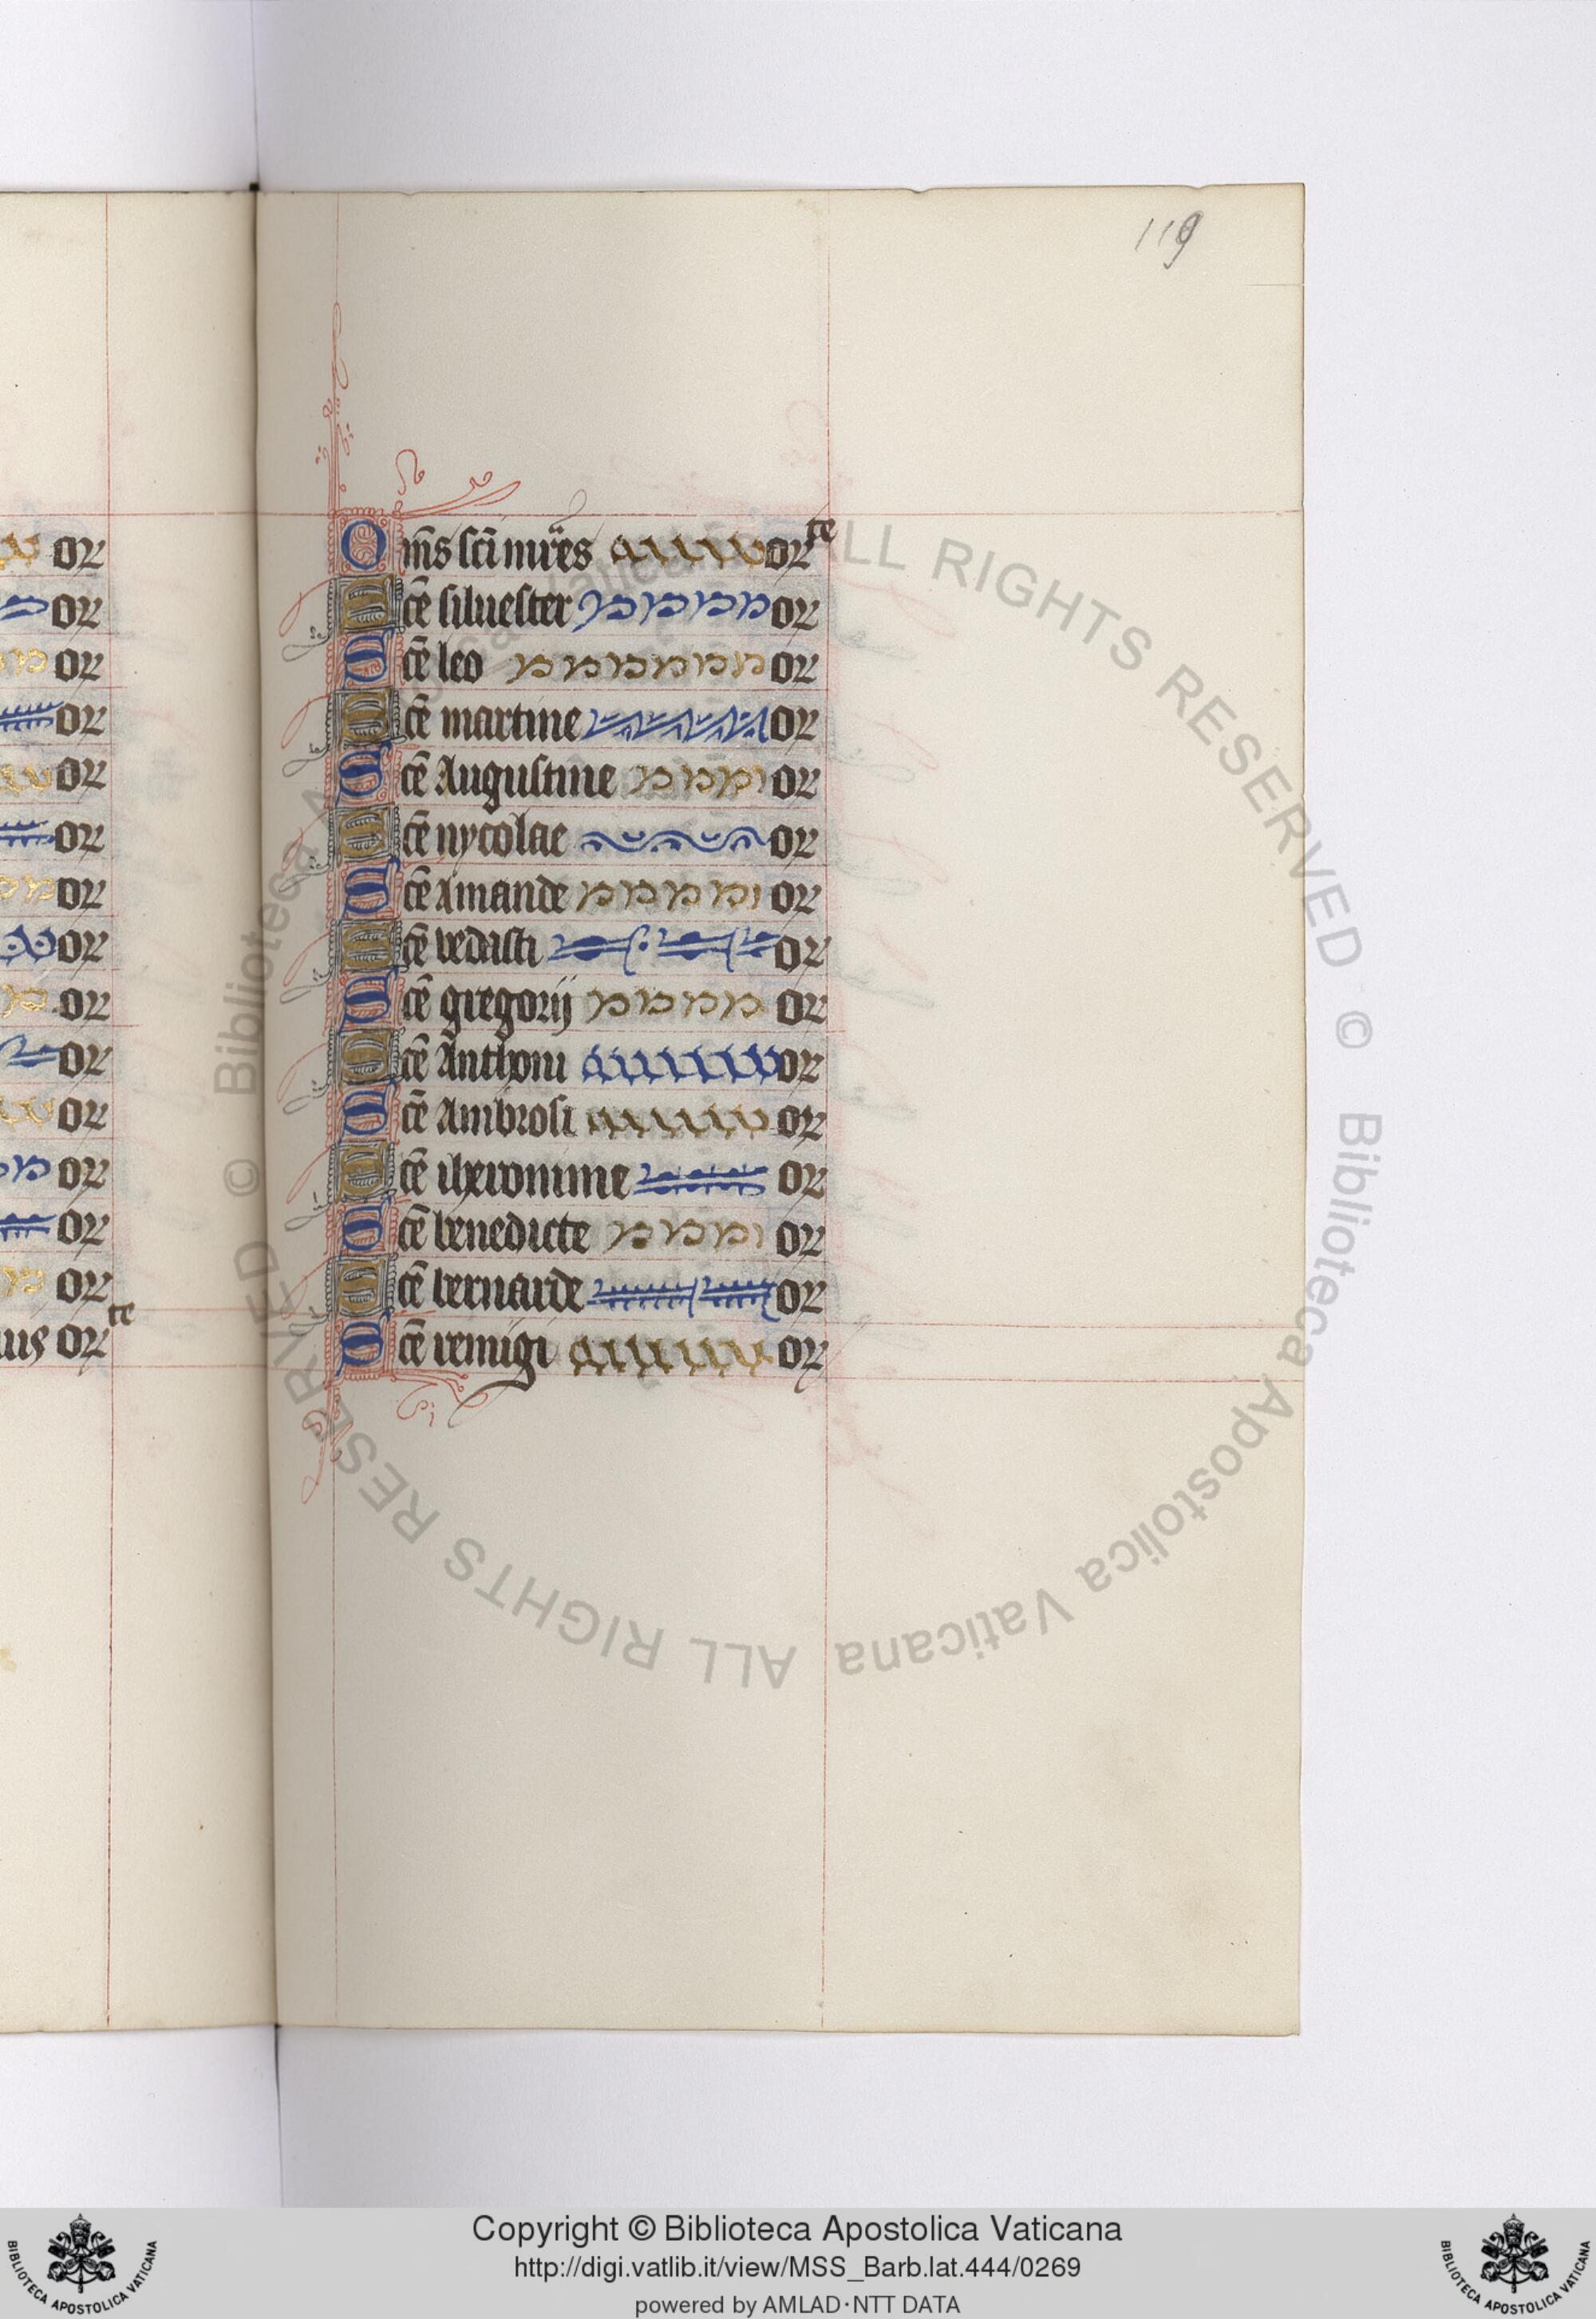 119
or
or
or
or
or
or
or
or
or
or
or
or
or
or
us or te
Om̄s sc̄i mr̄es or te
Sc̄e siluester or
Sc̄e leo or
Sc̄e martine or
Sc̄e Augustine or
Sc̄e nycolae or
Sc̄e Amande or
Sc̄e vedasti or
Sc̄e gregorij or
Sc̄e Anthoni or
Sc̄e Ambrosi or
Sc̄e iheronime or
Sc̄e benedicte or
Sc̄e bernarde or
Sc̄e remigi or
© Biblioteca Apostolica Vaticana ALL RIGHTS RESERVED © Biblioteca Apostolica Vaticana ALL RIGHTS RESERVED
Copyright © Biblioteca Apostolica Vaticana
http://digi.vatlib.it/view/MSS_Barb.lat.444/0269
powered by AMLAD·NTT DATA
BIBLIOTECA APOSTOLICA VATICANA
BIBLIOTECA APOSTOLICA VATICANA